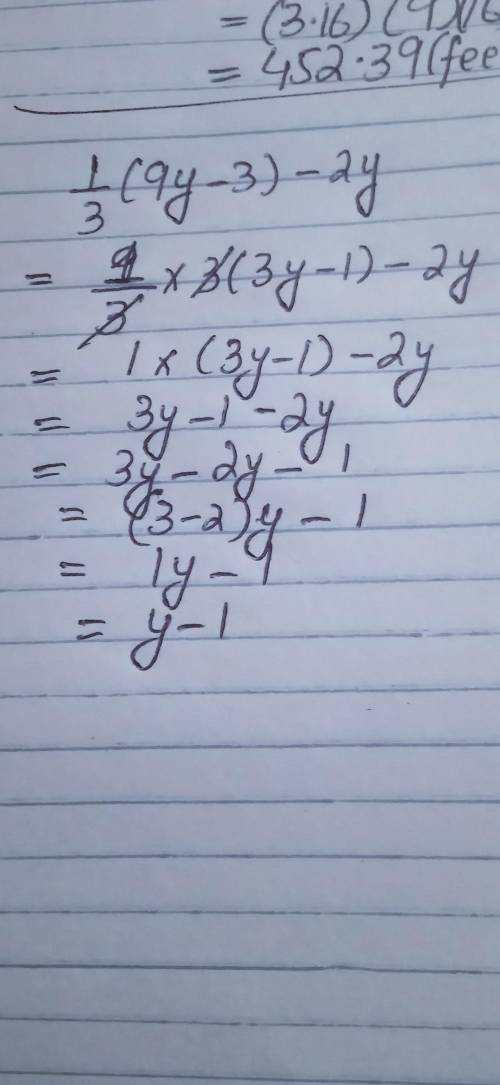 = (3.16) (9)(16
= 452.39(fee
1/3 (9y-3) - 2y
= 1/3 x 3(3y-1) - 2y
= 1 x (3y-1) - 2y
= 3y-1-2y
= 3y-2y-1
= (3-2)y-1
= 1y-1
= y-1